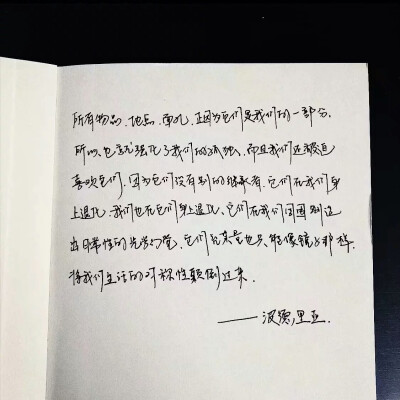 所有物品、地点、面孔,正因为它们是我们的一部分,
所以,也就强化了我们的孤独,而且我们还被迫
喜欢它们,因为它们没有别的继承者,它们在我们身
上退化,我们也在它们身上退化、它们在我们周围划边
出日常性的光学门堂,它们充其量也只能像镜子那样,
将我们生活的对称性颠倒过来.
——波德里亚.